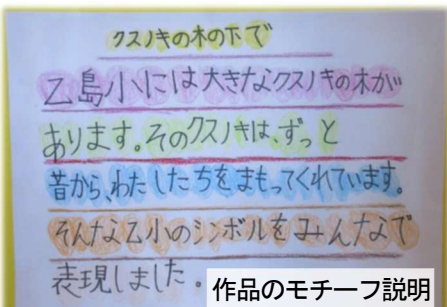 クスノキの木の下で
乙島小には大きなクスノキの木が
あります。そのクスノキは、ずっと
昔から、わたしたちをまもってくれています。
そんな乙小のシンボルをみんなで
表現しました。
作品のモチーフ説明